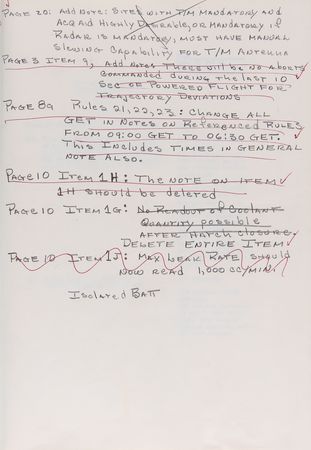 PAGE 20: ADD NOTE: SITES WITH T/M MANDATORY AND
ACQ AID HIGHLY DESIRABLE, OR MANDATORY IF
RADAR IS MANDATORY, MOST HAVE MANUAL
SLEWING CAPABILITY FOR T/M ANTENNA
PAGE 3 ITEM 9, ADD NOTE: THERE WILL BE NO ABORTS
COMMANDED DURING THE LAST 10
SEC OF POWERED FLIGHT FOR
TRAJECTORY DEVIATIONS
PAGE 89 RULES 21, 22, 23: CHANGE ALL
GET IN NOTES ON REFERENCED RULES
FROM 09:00 GET TO 06:30 GET.
THIS INCLUDES TIMES IN GENERAL
NOTE ALSO.
PAGE 10 ITEM 1H: THE NOTE ON ITEM
1H SHOULD BE DELETED
PAGE 10 ITEM 1G: NO READOUT OF COOLANT
QUANTITY POSSIBLE
AFTER HATCH CLOSURE
DELETE ENTIRE ITEM
PAGE 10 ITEM 1J: MAX LEAK RATE SHOULD
NOW READ 1,000 CC/MIN.
ISOLATED BATT